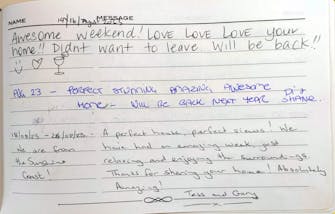 NAME MESSAGE
Awesome weekend! LOVE LOVE LOVE your
home!! Didnt want to leave will be back!!
23 - PERFECT STUNNING AMAZING AWESOME
HOME - WILL BE BACK NEXT YEAR
SHANE
A perfect house, perfect views! We
We are from have had an amazing week, just
the Sunshine relaxing and enjoying the surroundings.
Coast! Thanks for sharing your home! Absolutely
Amazing!
Tess and Gary